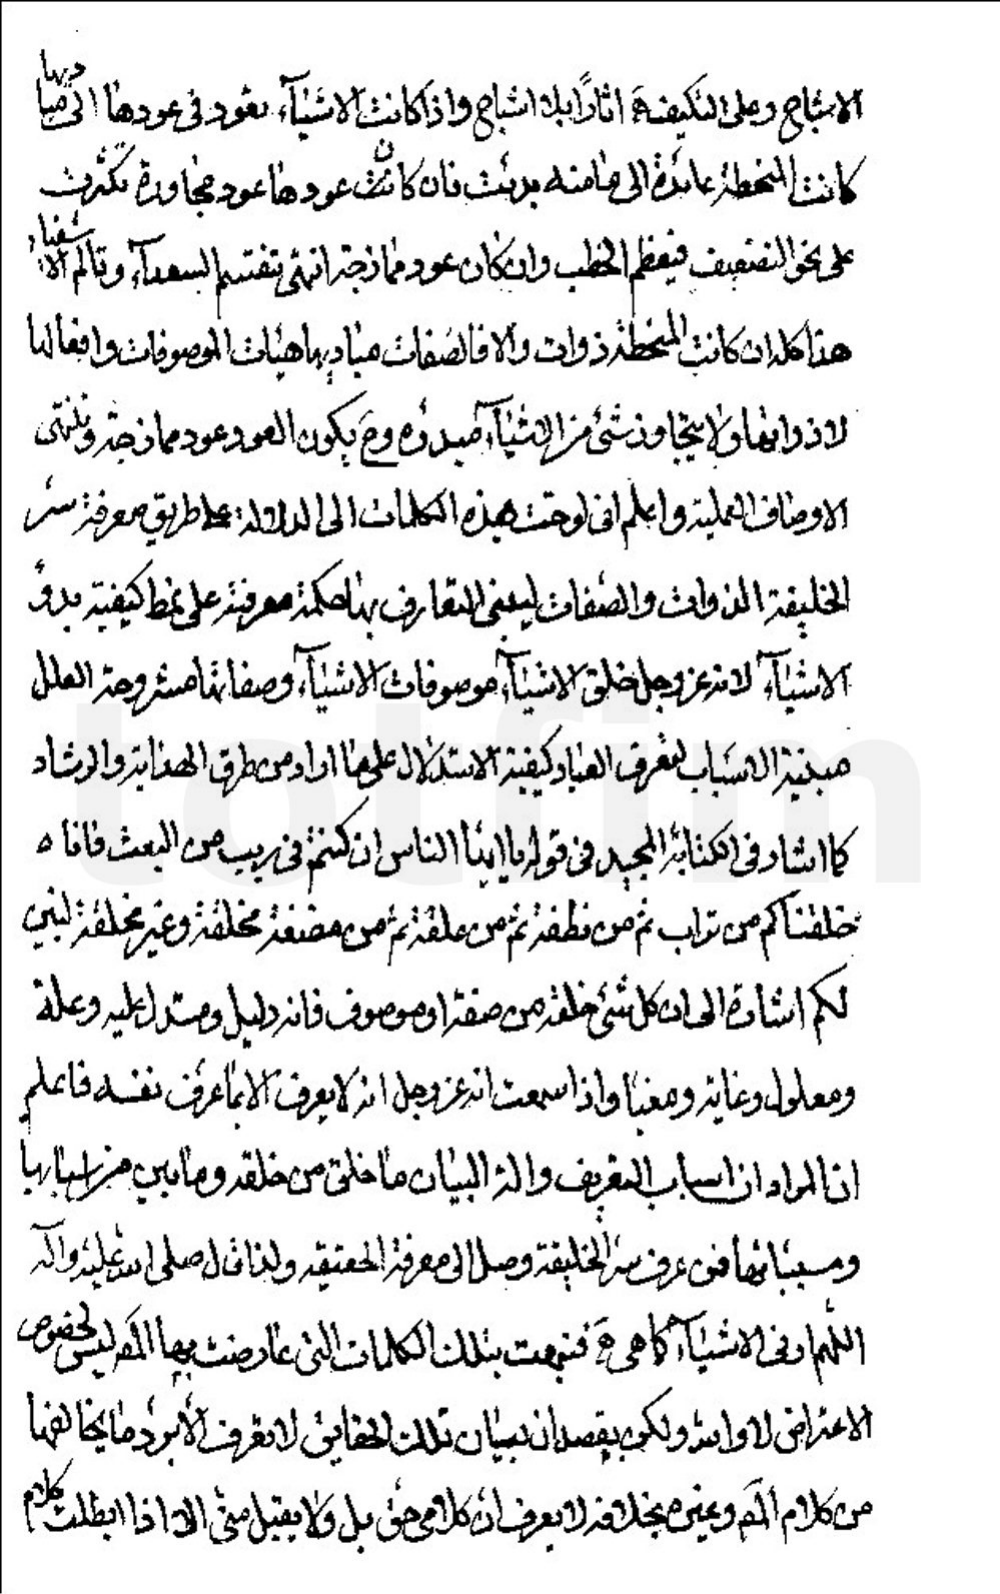 الاشباح وعلى التكيفية اثارًا بل اشباح واذا كانت الاشياۤء تعود فى عودها الى مباديها
كانت المنحطة عائدة الى ما منه بدئت فان كانت عودها عود مجاورة تكثرت
على نحو التضعيف فيعظم الخطب وان كان عود ممازجة انتهى تقتسم السعداۤء وتألم الاشقياء
هذا كله ان كانت المنحطة ذوات والا فالصفات مباديها هيئات الموصوفات وافعالها
لا ذواتها ولا يتجاوز شئ من الاشياۤء مبدؤه وح يكون العود عود ممازجة وتنتهى
الاوصاف العملية واعلم انى لوحت بهذه الكلمات الى الدلالة على طريق معرفة سر
الخليقة الذوات والصفات ليبنى التعارف بها حكمة معرفية على نمط كيفية بدؤ
الاشياۤء لانه عز وجل خلق الاشياۤء موصوفات الاشياۤء وصفاتها مشروحة العلل
مبينة الاسباب لتعرف العباد كيفية الاستدلال على ما اراد من طرق الهداية والرشاد
كما اشار فى كتابه المجيد فى قوله يا ايها الناس ان كنتم فى ريب من البعث فانا ٥
خلقناكم من تراب ثم من نطفة ثم من علقة ثم من مضغة مخلقة وغير مخلقة لنبين
لكم اشارة الى ان كل شئ خلقه من صفة او موصوف فانه دليل ومستدل عليه وعلة
ومعلول وغاية ومغيا واذا سمعت انه عز وجل انه لا يعرف الا بما عرف نفسه فاعلم
ان المراد ان اسباب التعريف والة البيان ما خلق من خلقه وما بين من اسبابها
ومسبباتها فمن عرف سر الخليقة وصل الى معرفة الحقيقة ولذا قال صلى الله عليه وآله
اللهم ارنى الاشياۤء كما هى ه فنبهت بتلك الكلمات التى عارضت بها المص ليس لخصوص
الاعتراض لا والله ولكن بقصد ان بيان تلك الحقائق لا تعرف الا برد ما يخالفها
من كلام المص وغيره بخلافه لا يعرف ان كلامى حق بل ولا يقبل منى الا اذا ابطلت كلام